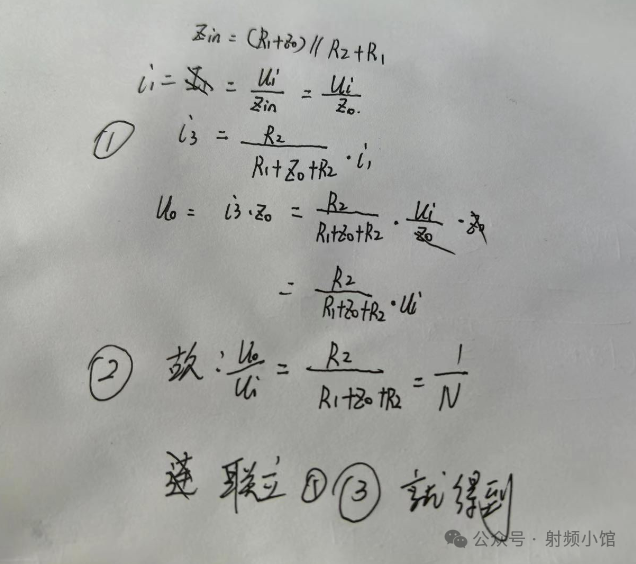 Zin = (R1+Z0) // R2 + R1
i1 = = Ui/Zin = Ui/Z0.
① i3 = R2/(R1+Z0+R2) · i1
U0 = i3·Z0 = R2/(R1+Z0+R2) · Ui/Z0 · Z0
= R2/(R1+Z0+R2) · Ui
② 故: U0/Ui = R2/(R1+Z0+R2) = 1/N
联立 ① ③ 就得到
公众号 · 射频小馆